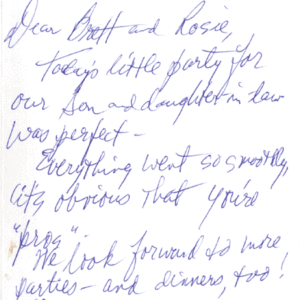 Dear Brett and Rosie,
Today's little party for
our Son and daughter in law
was perfect –
Everything went so smoothly,
its obvious that you're
"pros".
We look forward to more
parties – and dinners, too!